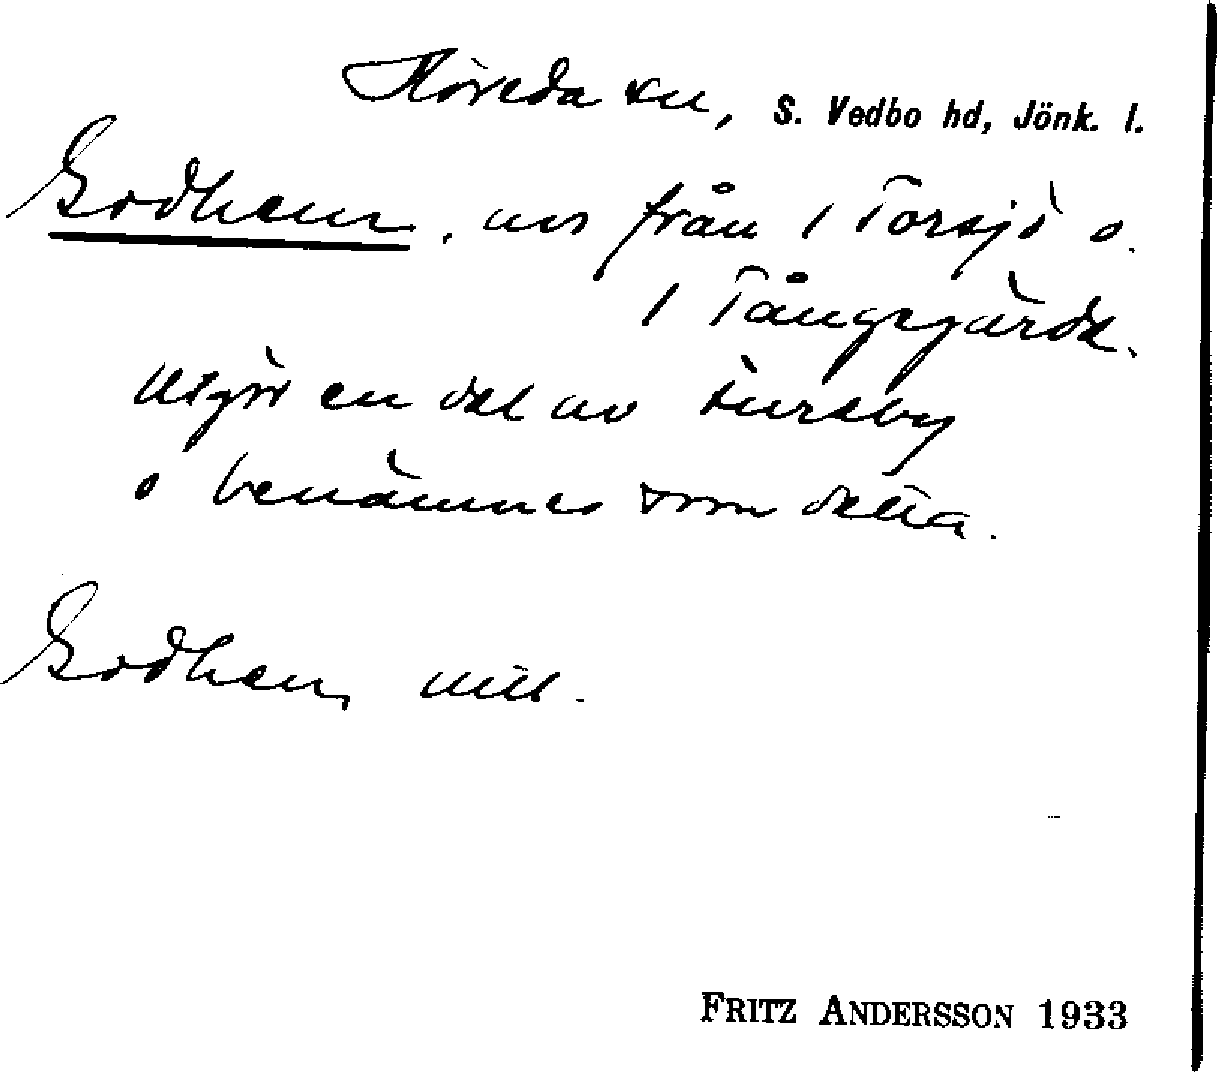 Höreda sn, S. Vedbo hd, Jönk. l.
Godhem, avs från 1 Torsjö o.
1 Tångsgärde.
Utgör en del av Lursby
o benämnes som detta.
Godhem
FRITZ ANDERSSON 1933